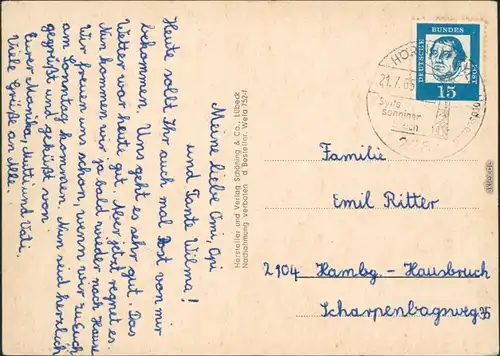 Meine liebe Omi, Opi
und Tante Wilma!
Heute sollt Ihr auch mal Post von mir
bekommen. Uns geht es sehr gut. Das
Wetter war heute gut. Aber jetzt regnet es.
Nun kommen wir ja bald wieder nach Hause
Wir freuen uns schon, wenn wir zu Euch
am Sonntag kommen. Nun seid herzlich
gegrüßt und geküßt von
Eurer Monika, Mutti und Vati.
Viele Grüße an Alle.
Hersteller und Verlag Schöning & Co., Lübeck
Nachahmung verboten d Bestellnr. Wela 752/1
DEUTSCHE BUNDESPOST
15
21.7.65
Sylts
Sonniger
Süden
Familie
Emil Ritter
2104 Hambg.-Hausbruch
Scharpenbargsweg 35